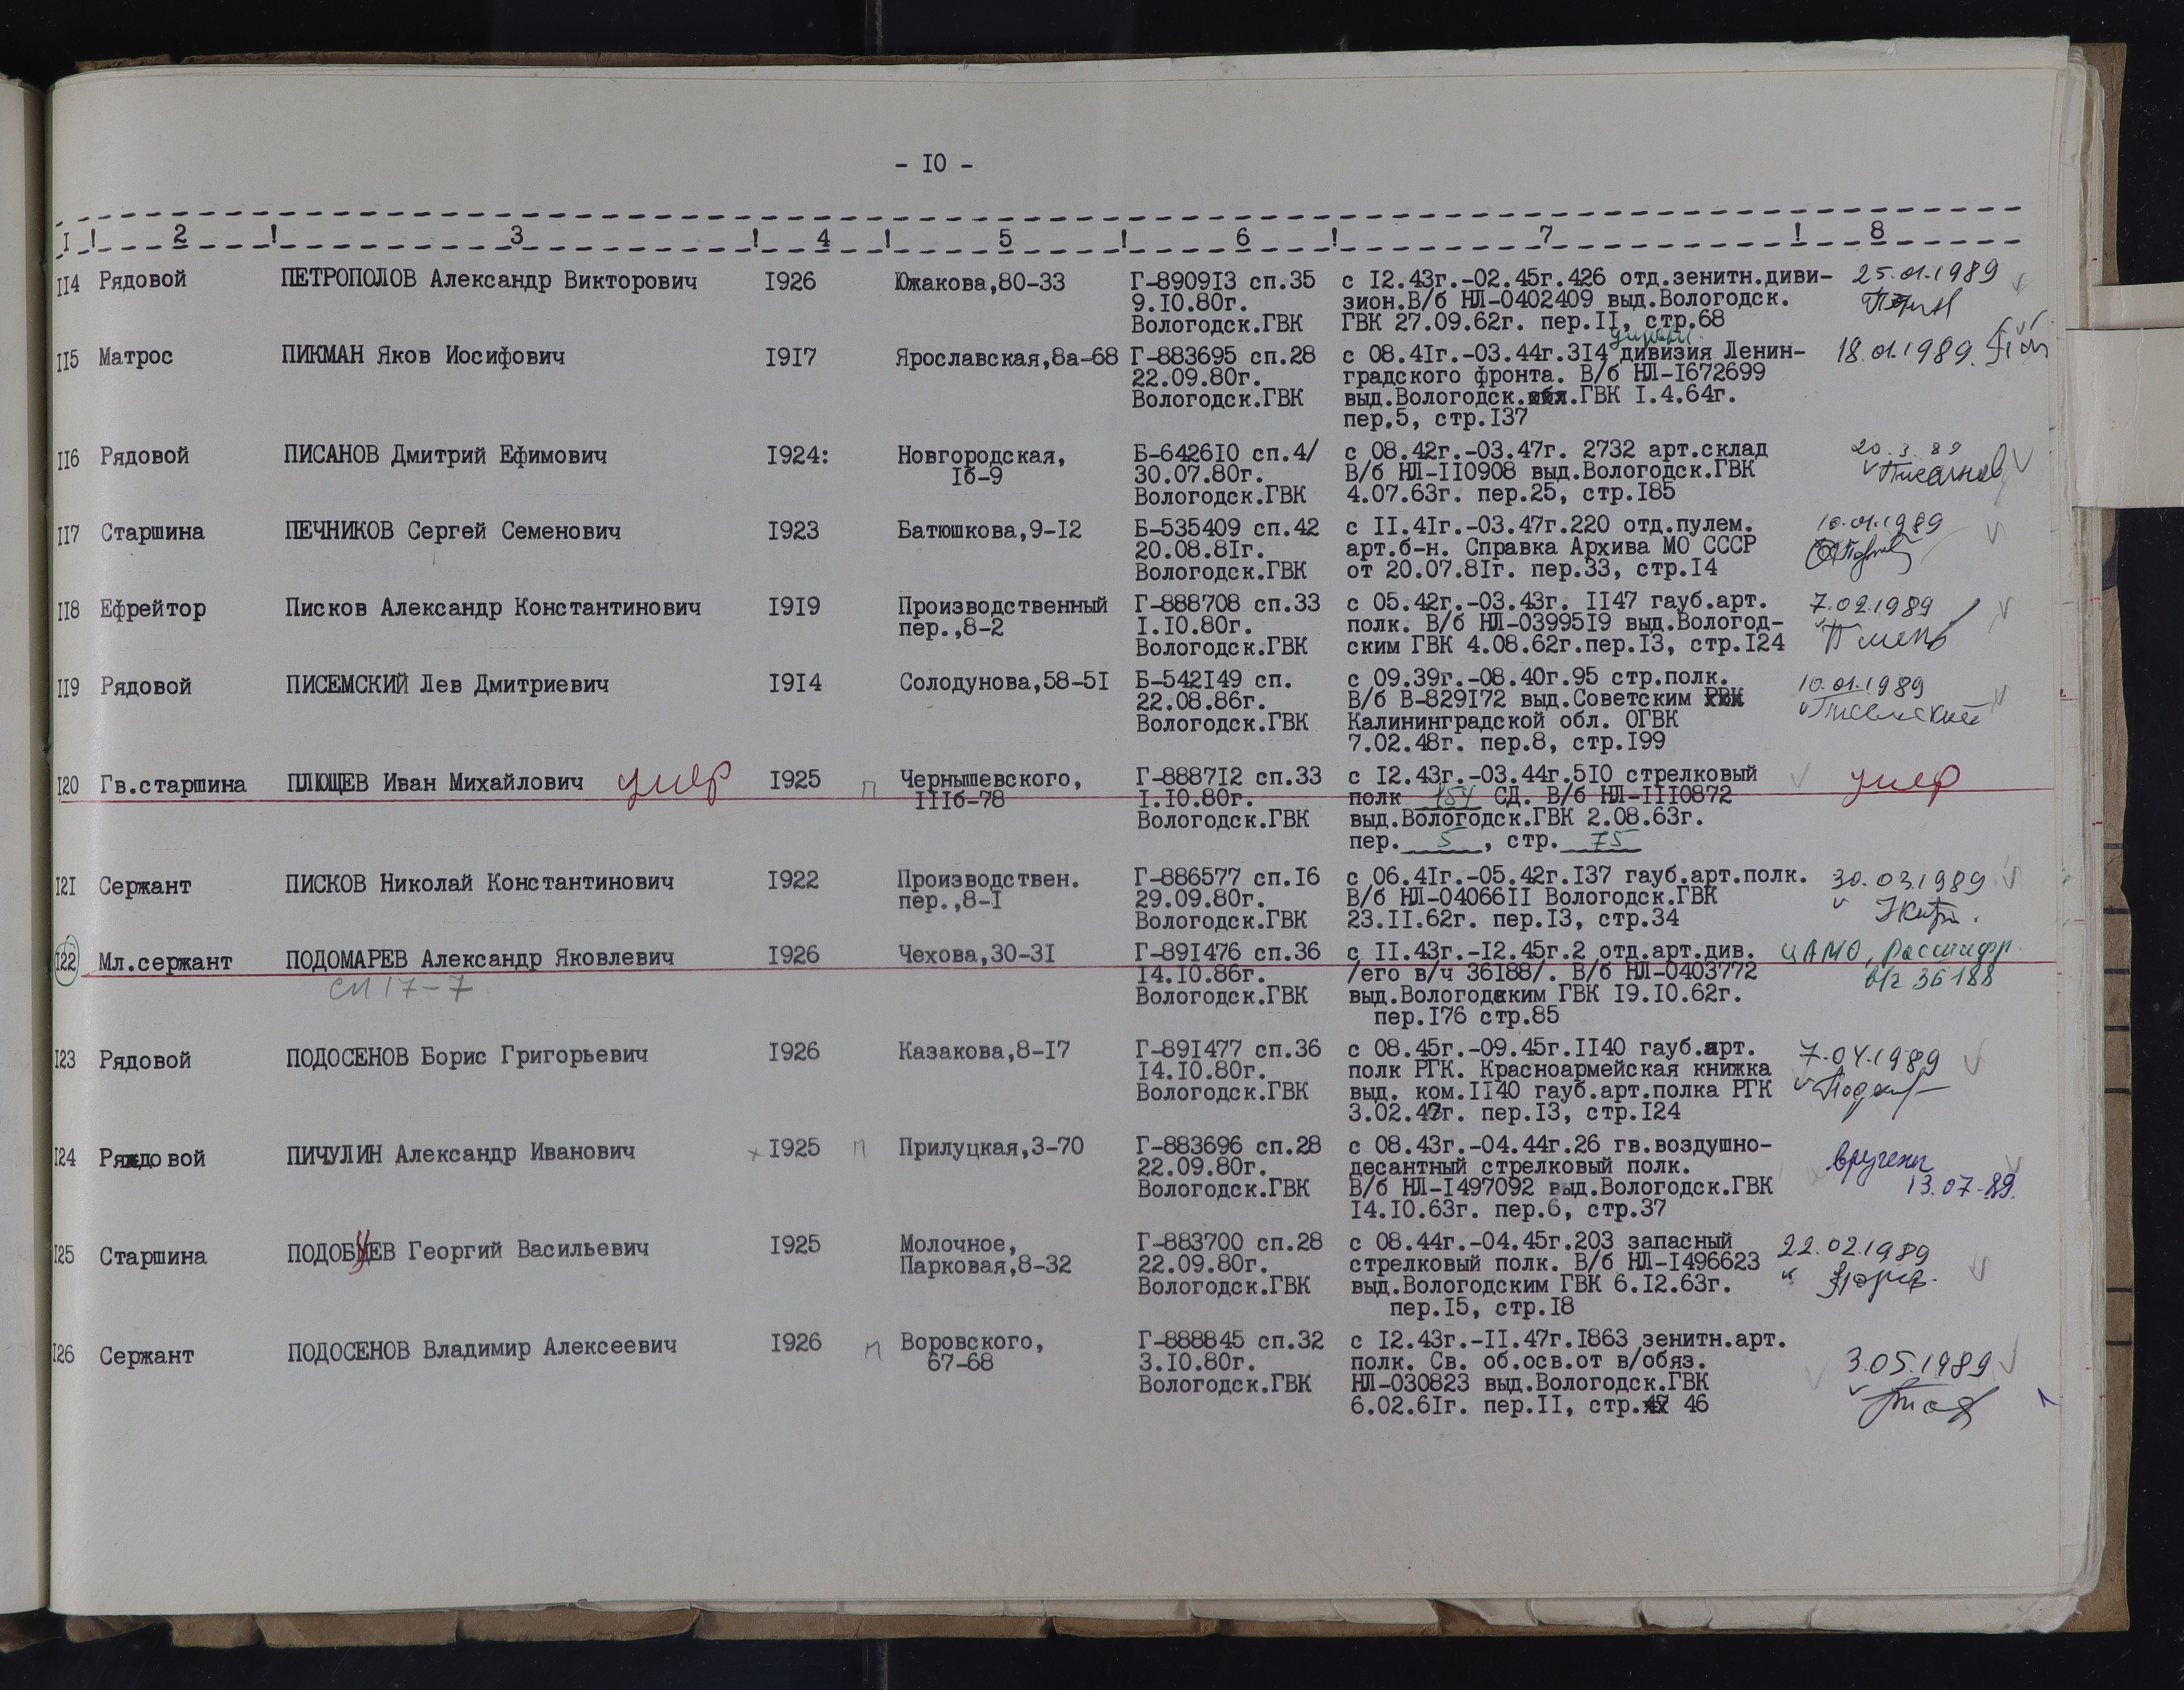 - I0 -
I ! 2 ! 3 ! 4 ! 5 ! 6 ! 7 ! 8
II4 Рядовой ПЕТРОПОЛОВ Александр Викторович I926 Южакова,80-33 Г-8909I3 сп.35 с I2.43г.-02.45г.426 отд.зенитн.диви- 25.01.1989
9.I0.80г. зион.В/б НЛ-0402409 выд.Вологодск.
Вологодск.ГВК ГВК 27.09.62г. пер.II, стр.68
II5 Матрос ПИКМАН Яков Иосифович I9I7 Ярославская,8а-68 Г-883695 сп.28 с 08.4Iг.-03.44г.3I4 дивизия Ленин- 18.01.1989.
22.09.80г. градского фронта. В/б НЛ-I672699
Вологодск.ГВК выд.Вологодск.обл.ГВК I.4.64г.
пер.5, стр.I37
II6 Рядовой ПИСАНОВ Дмитрий Ефимович I924: Новгородская, Б-6426I0 сп.4/ с 08.42г.-03.47г. 2732 арт.склад 20.3.89
Iб-9 30.07.80г. В/б НЛ-II0908 выд.Вологодск.ГВК Писанов
Вологодск.ГВК 4.07.63г. пер.25, стр.I85
II7 Старшина ПЕЧНИКОВ Сергей Семенович I923 Батюшкова,9-I2 Б-535409 сп.42 с II.4Iг.-03.47г.220 отд.пулем. 10.01.1989
20.08.8Iг. арт.б-н. Справка Архива МО СССР
Вологодск.ГВК от 20.07.8Iг. пер.33, стр.I4
II8 Ефрейтор Писков Александр Константинович I9I9 Производственный Г-888708 сп.33 с 05.42г.-03.43г. II47 гауб.арт. 7.02.1989
пер.,8-2 I.I0.80г. полк. В/б НЛ-03995I9 выд.Вологод-
Вологодск.ГВК ским ГВК 4.08.62г.пер.I3, стр.I24
II9 Рядовой ПИСЕМСКИЙ Лев Дмитриевич I9I4 Солодунова,58-5I Б-542I49 сп. с 09.39г.-08.40г.95 стр.полк. 10.01.1989
22.08.86г. В/б В-829I72 выд.Советским РВК Писемский
Вологодск.ГВК Калининградской обл. ОГВК
7.02.48г. пер.8, стр.I99
I20 Гв.старшина ПЛЮЩЕВ Иван Михайлович умер I925 п Чернышевского, Г-8887I2 сп.33 с I2.43г.-03.44г.5I0 стрелковый умер
IIIб-78 I.I0.80г. полк 154 СД. В/б НЛ-III0872
Вологодск.ГВК выд.Вологодск.ГВК 2.08.63г.
пер. 5 , стр. 75
I2I Сержант ПИСКОВ Николай Константинович I922 Производствен. Г-886577 сп.I6 с 06.4Iг.-05.42г.I37 гауб.арт.полк. 30.03.1989
пер.,8-I 29.09.80г. В/б НЛ-04066II Вологодск.ГВК
Вологодск.ГВК 23.II.62г. пер.I3, стр.34
I22 Мл.сержант ПОДОМАРЕВ Александр Яковлевич I926 Чехова,30-3I Г-89I476 сп.36 с II.43г.-I2.45г.2 отд.арт.див. ЦАМО, Расшифр.
сп 17-7 I4.I0.86г. /его в/ч 36I88/. В/б НЛ-0403772 в/ч 36188
Вологодск.ГВК выд.Вологодским ГВК I9.I0.62г.
пер.I76 стр.85
I23 Рядовой ПОДОСЕНОВ Борис Григорьевич I926 Казакова,8-I7 Г-89I477 сп.36 с 08.45г.-09.45г.II40 гауб.арт. 7.04.1989
I4.I0.80г. полк РГК. Красноармейская книжка
Вологодск.ГВК выд. ком.II40 гауб.арт.полка РГК
3.02.47г. пер.I3, стр.I24
I24 Рядовой ПИЧУЛИН Александр Иванович I925 п Прилуцкая,3-70 Г-883696 сп.28 с 08.43г.-04.44г.26 гв.воздушно- вручены
22.09.80г. десантный стрелковый полк. 13.07-89.
Вологодск.ГВК В/б НЛ-I497092 выд.Вологодск.ГВК
I4.I0.63г. пер.6, стр.37
I25 Старшина ПОДОБУЕВ Георгий Васильевич I925 Молочное, Г-883700 сп.28 с 08.44г.-04.45г.203 запасный 22.02.1989
Парковая,8-32 22.09.80г. стрелковый полк. В/б НЛ-I496623
Вологодск.ГВК выд.Вологодским ГВК 6.I2.63г.
пер.I5, стр.I8
I26 Сержант ПОДОСЕНОВ Владимир Алексеевич I926 п Воровского, Г-888845 сп.32 с I2.43г.-II.47г.I863 зенитн.арт.
67-68 3.I0.80г. полк. Св. об.осв.от в/обяз. 3.05.1989
Вологодск.ГВК НЛ-030823 выд.Вологодск.ГВК
6.02.6Iг. пер.II, стр.47 46